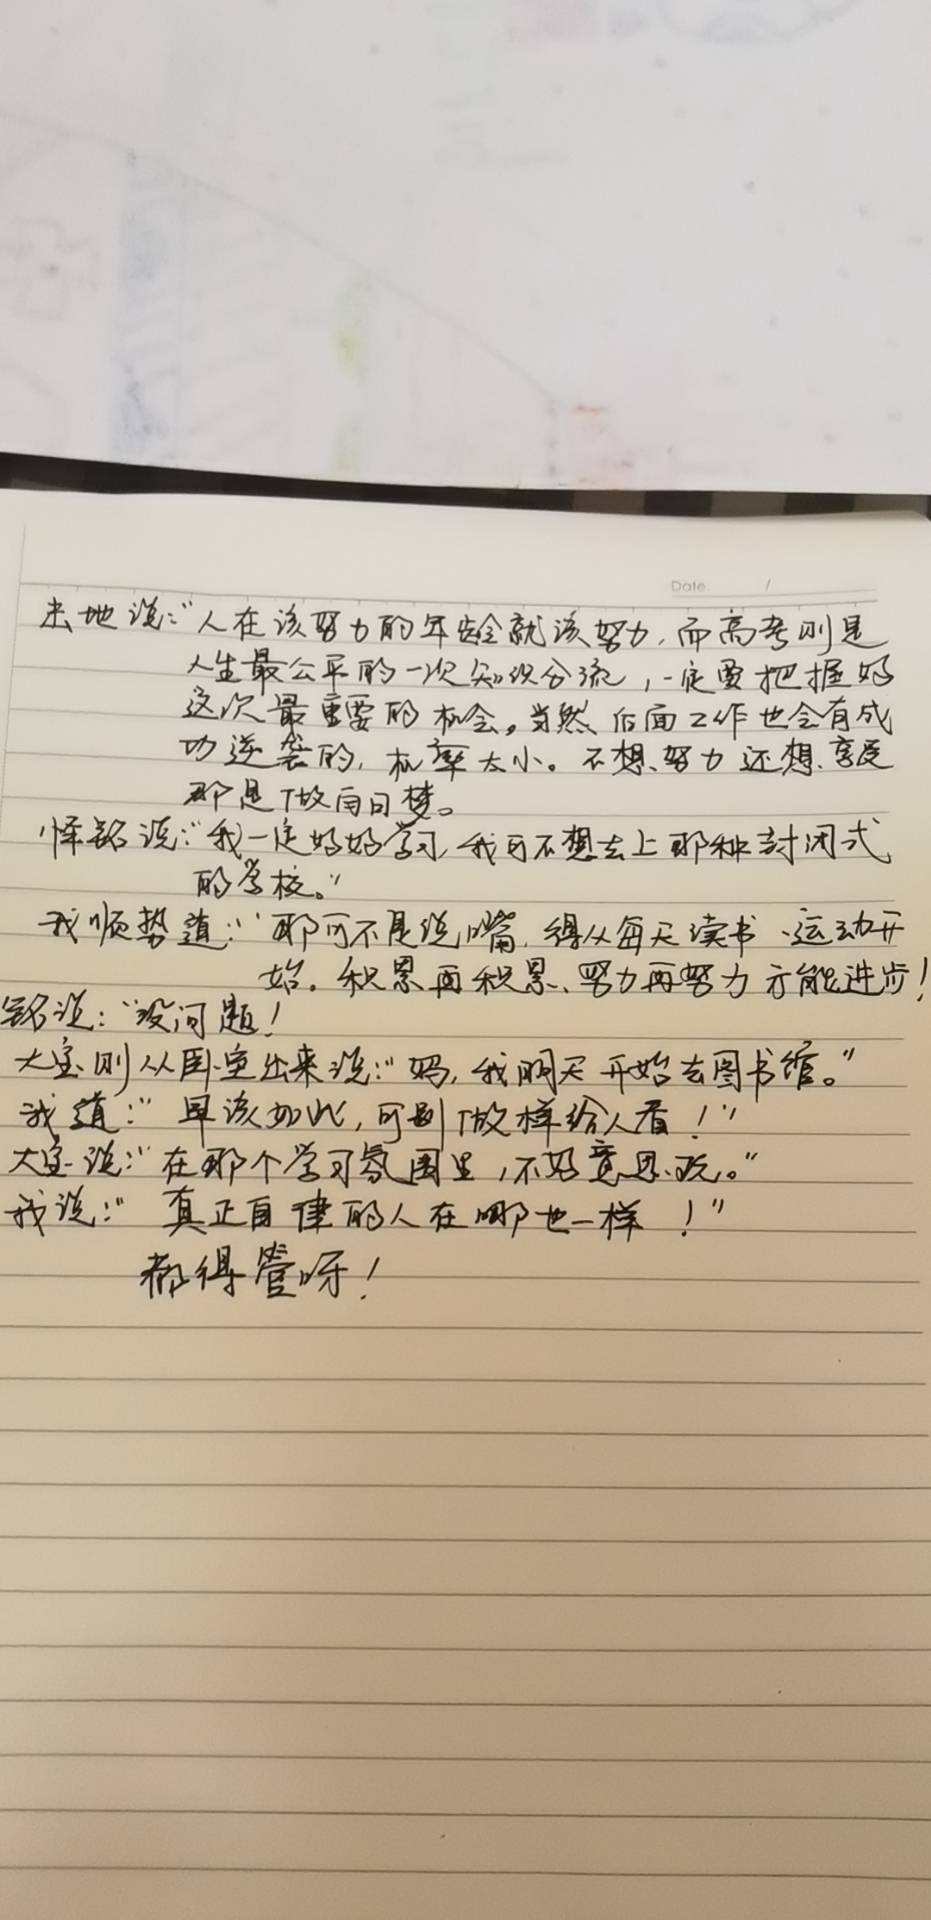 Date. /
来地说：“人在该努力的年龄就该努力，而高考则是
人生最公平的一次知识分流，一定要把握好
这次最重要的机会。当然后面工作也会有成
功逆袭的，机率太小。不想努力还想享受
那是做白日梦。
怿铭说：“我一定好好学习，我可不想去上那种封闭式
的学校。”
我顺势道：“那可不是说嘴，得从每天读书、运动开
始。积累再积累、努力再努力方能进步！
铭说：“没问题！
大宝则从卧室出来说：“妈，我明天开始去图书馆。”
我道：“早该如此，可别做样给人看！”
大宝说：“在那个学习氛围里，不好意思玩。”
我说：“真正自律的人在哪也一样！”
都得管呀！